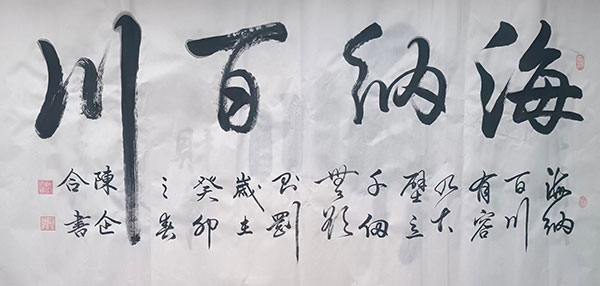 海納百川
海納
百川
有容
乃大
壁立
千仞
無欲
則剛
歲在
癸卯
之春
陳企
合書